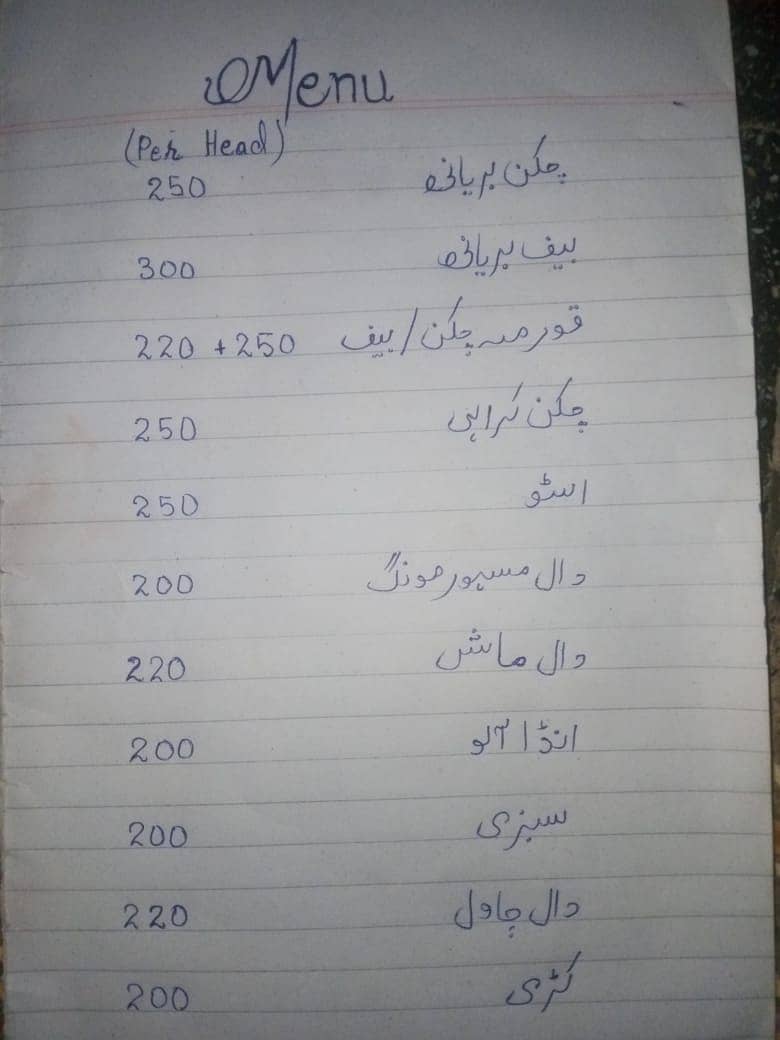 Menu
(Per Head)
چکن بریانی 250
بیف بریانی 300
قورمہ چکن/بیف 220 + 250
چکن کراہی 250
اسٹو 250
دال مسور مونگ 200
دال ماش 220
انڈا آلو 200
سبزی 200
دال چاول 220
کڑی 200